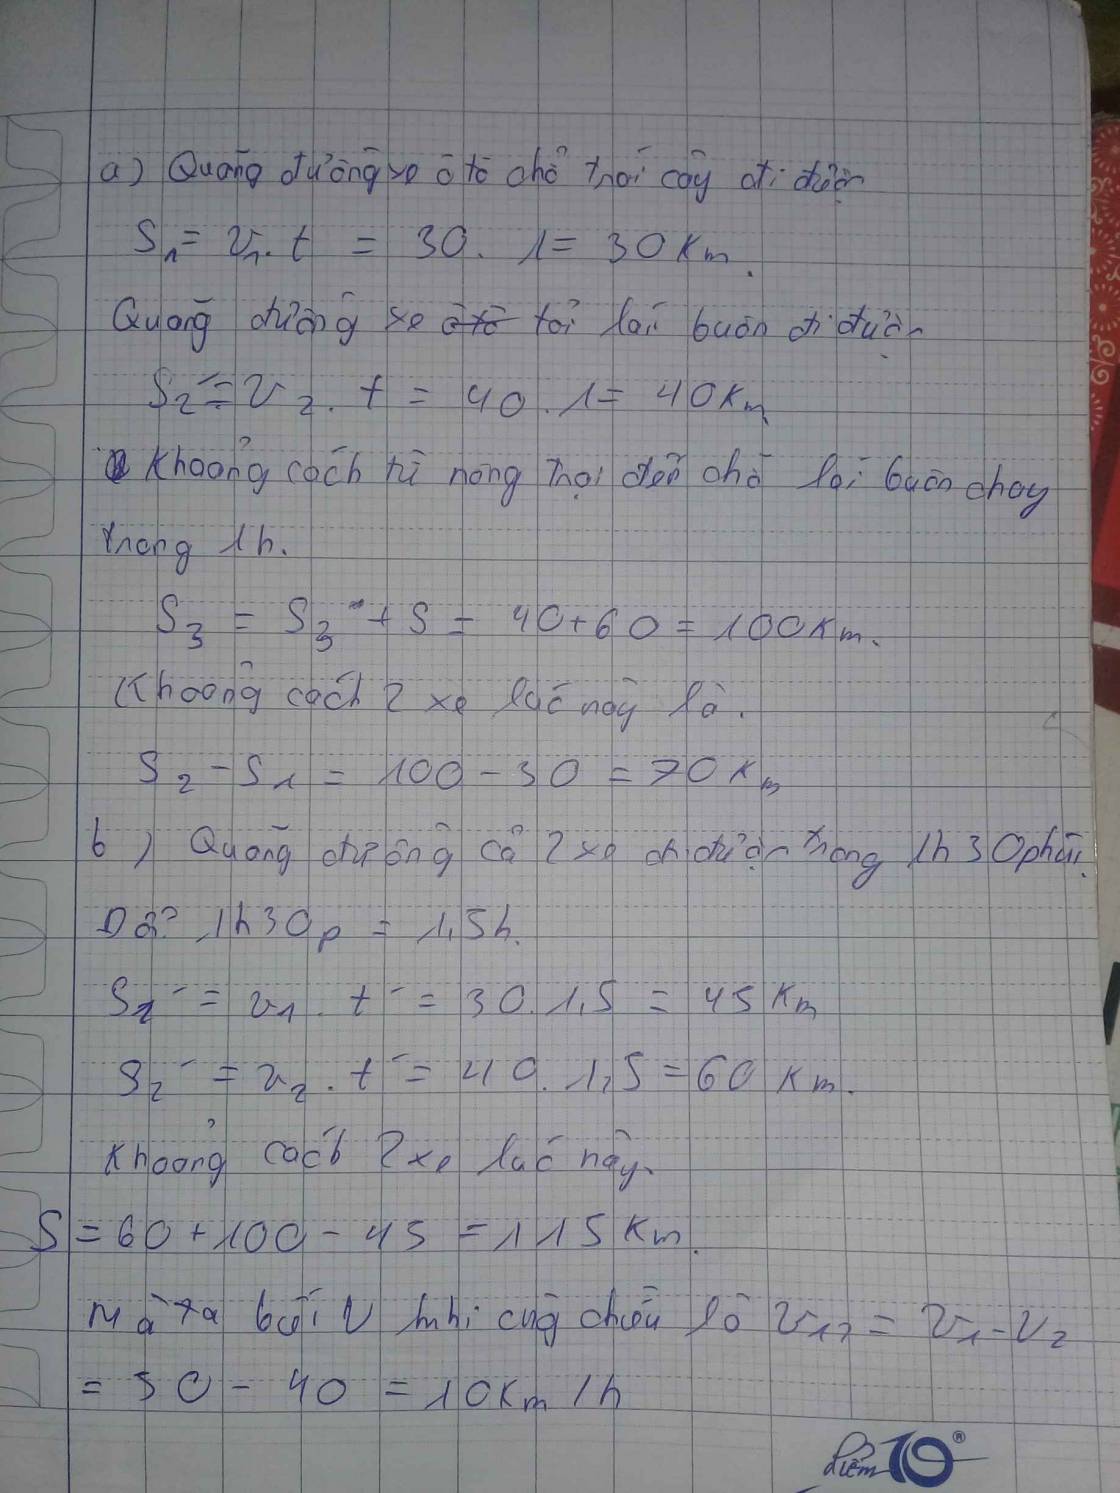 a) Quãng đường xe ô tô chở trái cây đi được
S₁ = v₁. t = 30. 1 = 30 Km.
Quãng đường xe ôtô lái buôn đi được
S₂' = v₂. t = 40. 1 = 40 Km
Khoảng cách từ nông trại đến chỗ lái buôn chạy
trong 1h.
S₃ = S₃' + S = 40 + 60 = 100 Km.
Khoảng cách 2 xe lúc này là.
S₂ - S₁ = 100 - 30 = 70 Km
b) Quãng đường cả 2 xe đi được trong 1h 30 phút.
Đổi 1h30p = 1,5h.
S₁' = v₁. t' = 30. 1,5 = 45 Km
S₂' = v₂. t' = 40. 1,5 = 60 Km.
Khoảng cách 2 xe lúc này.
S = 60 + 100 - 45 = 115 Km.
Mà ta v khi cùng chiều là v₁₂ = v₁ - v₂
= 30 - 40 = 10 Km/h
điểm 10®